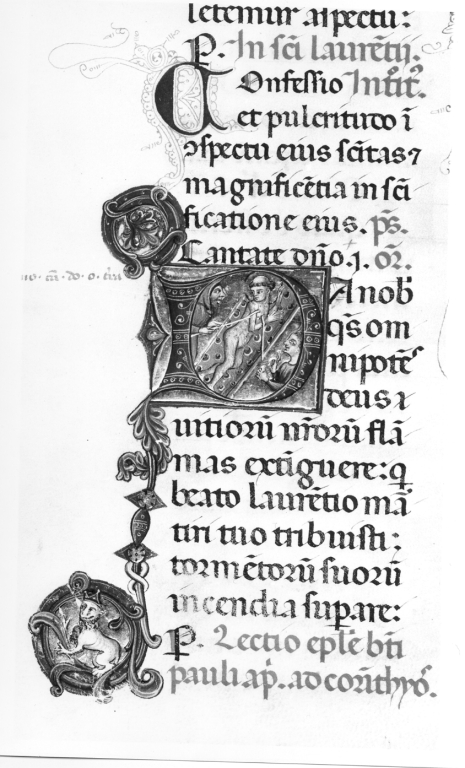 letemur aspectu:
P. In sc̄i laurētij.
Confessio Introit̄.
et pulcritudo ī
ↄspectu eius sc̄itas ⁊
magnificētia in sc̄i
ficatione eius. p̄s.
Cantate dn̄o. j. or̄.
Da nob̄
q̄s om
nipotēs
deus ⁊
uitiorū nr̄orū flā
mas extīguere: q̄
beato laurētio mā
tiri tuo tribuisti:
tormētorū suorū
incendia supare:
P. Lectio epl̄e bt̄i
pauli ap̄. ad corīthyōs.